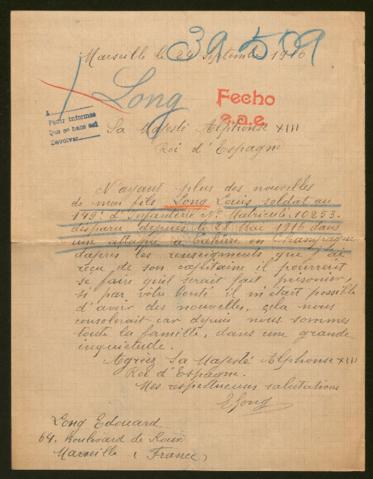 39509
Marseille le 24 Septembre 1916
Long
Fecho
e.a.e.
A
Pedir informes
Que se hace así
Devolver
Sa Majesté Alphonse XIII
Roi d'Espagne
N'ayant plus des nouvelles
de mon fils Long Louis soldat au
149e d'Infanterie No Matricule 10253
disparu depuis le 28 Mai 1916 dans
une attaque à Tahure en Champagne
d'après les renseignements que j'ai
reçu de son capitaine il pourrait
se faire qu'il serait fait prisonier,
si par votre bonté il m'était possible
d'avoir des nouvelles, cela nous
consolerait car depuis nous sommes
toute la famille, dans une grande
inquietude.
Agréez Sa Majesté Alphonse XIII
Roi d'Espagne.
Mes respectueuses salutations
E Long
Long Edouard
64 Boulevard de
Marseille (France)